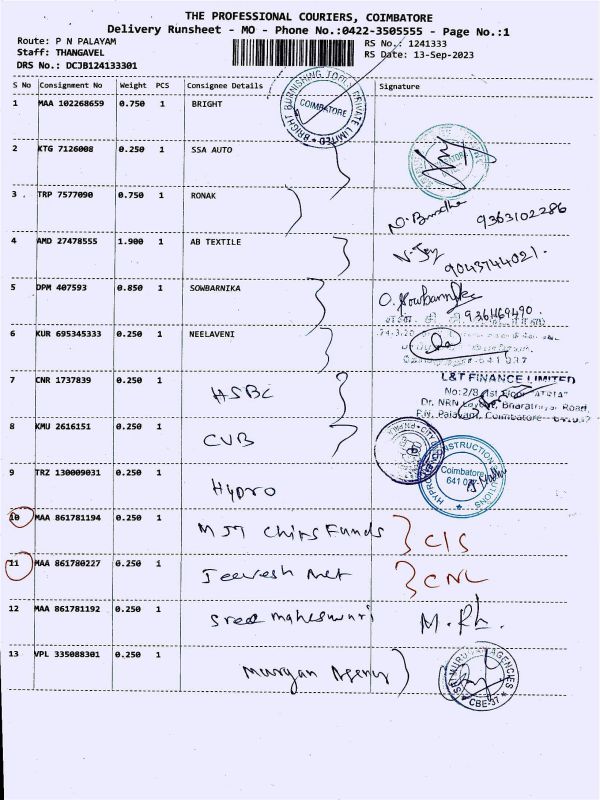 THE PROFESSIONAL COURIERS, COIMBATORE
Delivery Runsheet - MO - Phone No.:0422-3505555 - Page No.:1
Route: P N PALAYAM
Staff: THANGAVEL
DRS No.: DCJB124133301
RS No.: 1241333
RS Date: 13-Sep-2023
S No Consignment No Weight PCS Consignee Details Signature
1 MAA 102268659 0.750 1 BRIGHT
BRIGHT BURNISHING TOOLS PRIVATE LIMITED
COIMBATORE
2 KTG 7126008 0.250 1 SSA AUTO
3 TRP 7577090 0.750 1 RONAK
9363102286
4 AMD 27478555 1.900 1 AB TEXTILE
9043744021.
5 DPM 407593 0.850 1 SOWBARNIKA
O. Sowbarnika
9361169490.
6 KUR 695345333 0.250 1 NEELAVENI
7 CNR 1737839 0.250 1 HSBC
L&T FINANCE LIMITED
No:2/8 1st Floor
Dr. NRN Layout, Bharathiyar Road,
P.N. Palayam, Coimbatore
8 KMU 2616151 0.250 1 CUB
9 TRZ 130009031 0.250 1 Hypro
Coimbatore
641 037
10 MAA 861781194 0.250 1 MJM Chits Funds C/S
11 MAA 861780227 0.250 1 Jeevesh Met CNL
12 MAA 861781192 0.250 1 Sree maheswari
13 VPL 335088301 0.250 1 Murgan Agency
SRI MURUGAN AGENCIES
CBE-37